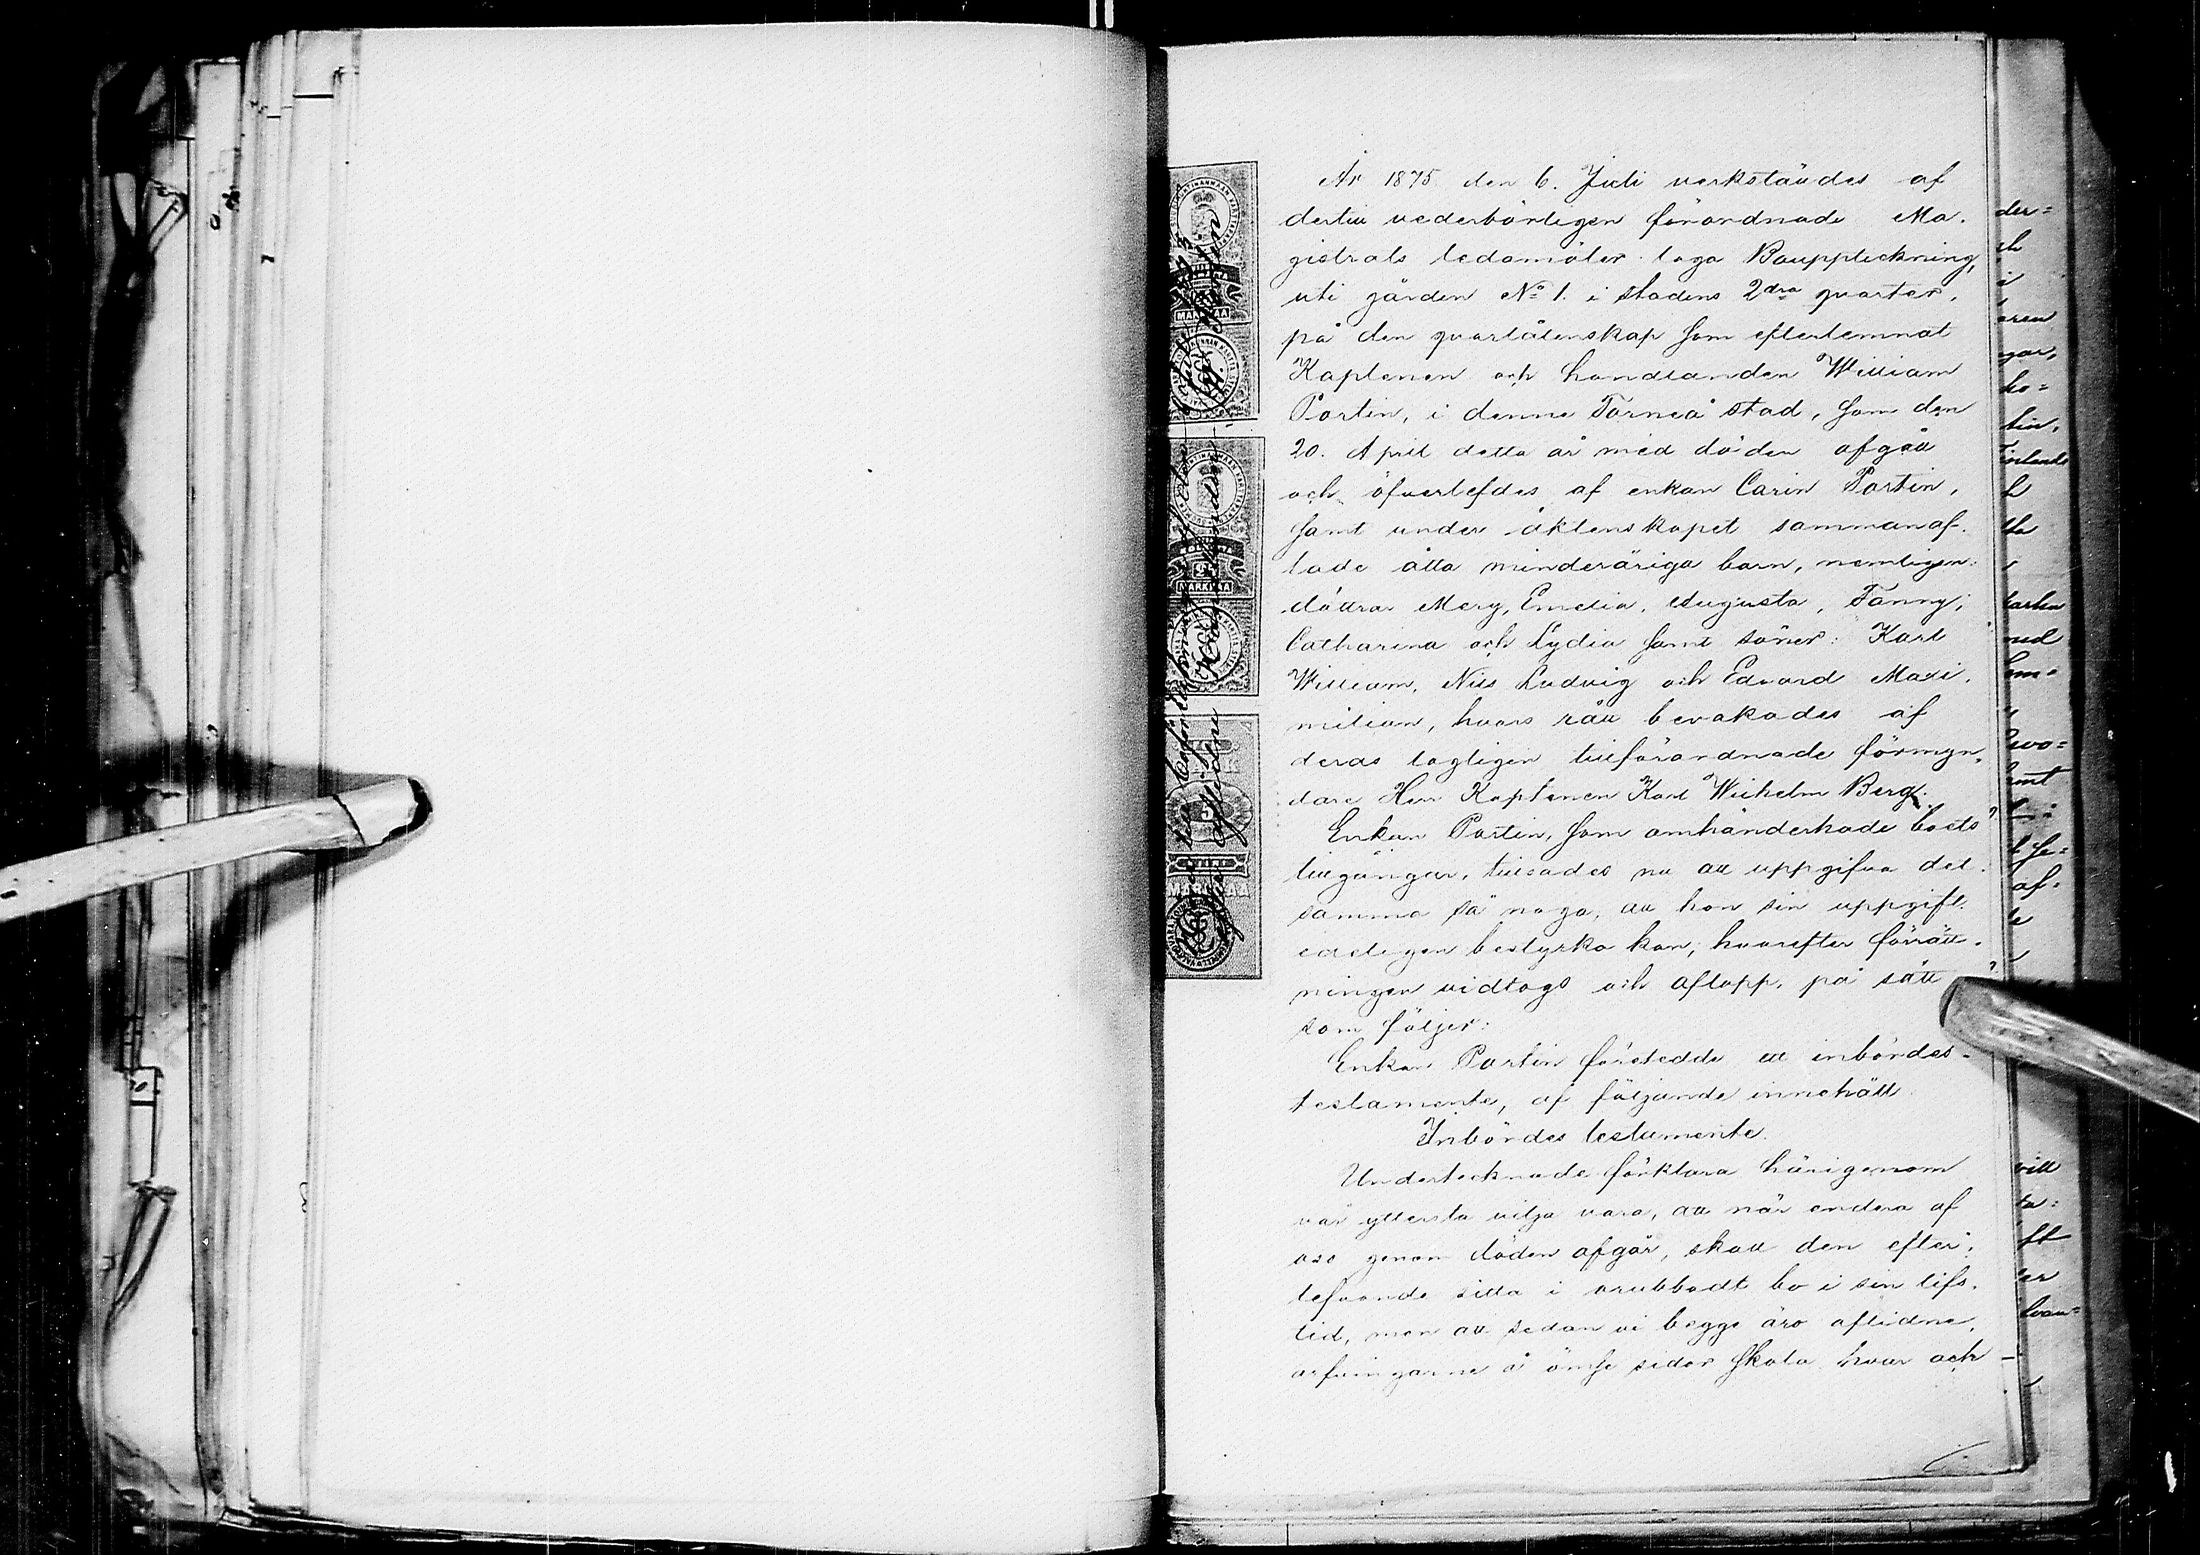 År 1875 den 6. Juli verkstäldes af
dertill vederbörligen förordnade Ma-
gistrats ledamöter laga Bouppteckning,
uti gården No 1. i stadens 2dra qvarter,
på den qvarlåtenskap som efterlemnat
Kaptenen och handlanden William
Portin, i denne Torneå stad, som den
20. April detta år med döden afgått
och öfverlefdes af enkan Carin Portin,
samt under äktenskapet sammanaf-
lade åtta minderåriga barn, nemligen:
döttrar Mery, Emelia, Augusta, Fanny,
Catharina och Lydia samt söner: Karl
William, Nils Ludvig och Edvard Maxi-
milian, hvars rätt bevakades af
deras lagligen tillförordnade förmyn-
dare Herr Kaptenen Karl Wilhelm Berg.
Enkan Portin, som omhänderhade boets
tillgångar, tillsades nu att uppgifva det-
samma så noga, att hon sin uppgift
edeligen bestyrka kan; hvarefter förrätt-
ningen vidtogs och aflopp, på sätt
som följer:
Enkan Portin företedde ett inbördes-
testamente, af följande innehåll
Inbördes testamente.
Undertecknade förklara härigenom
vår yttersta vilja vara, att när endera af
oss genom döden afgår, skall den efter-
lefvande sitta i orubbadt bo i sin lifs-
tid, men att sedan vi begge äro aflidne,
arfvingarne å ömse sidor skola hvar och
MARKKAA
MARKKAA
MARKKAA
der=
i
oren
gar,
ho=
tin,
Finlands
med
em=
amt
af=
vill
ta:
ft
er